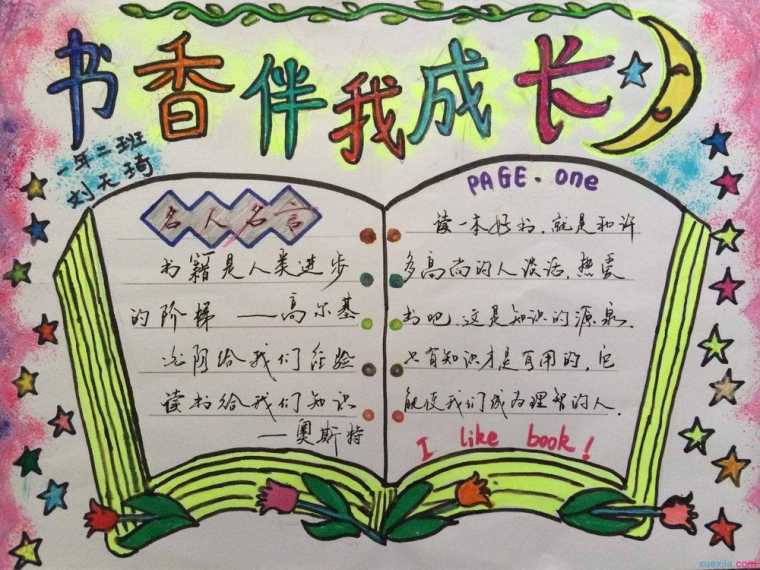 书香伴我成长
一年二班
刘天琦
名人名言
书籍是人类进步
的阶梯 ——高尔基
光阴给我们经验
读书给我们知识
——奥斯特
PAGE. one
读一本好书,就是和许
多高尚的人谈话,热爱
书吧,这是知识的源泉.
只有知识才是有用的,它
能使我们成为理智的人.
I like book!
xuexila.com